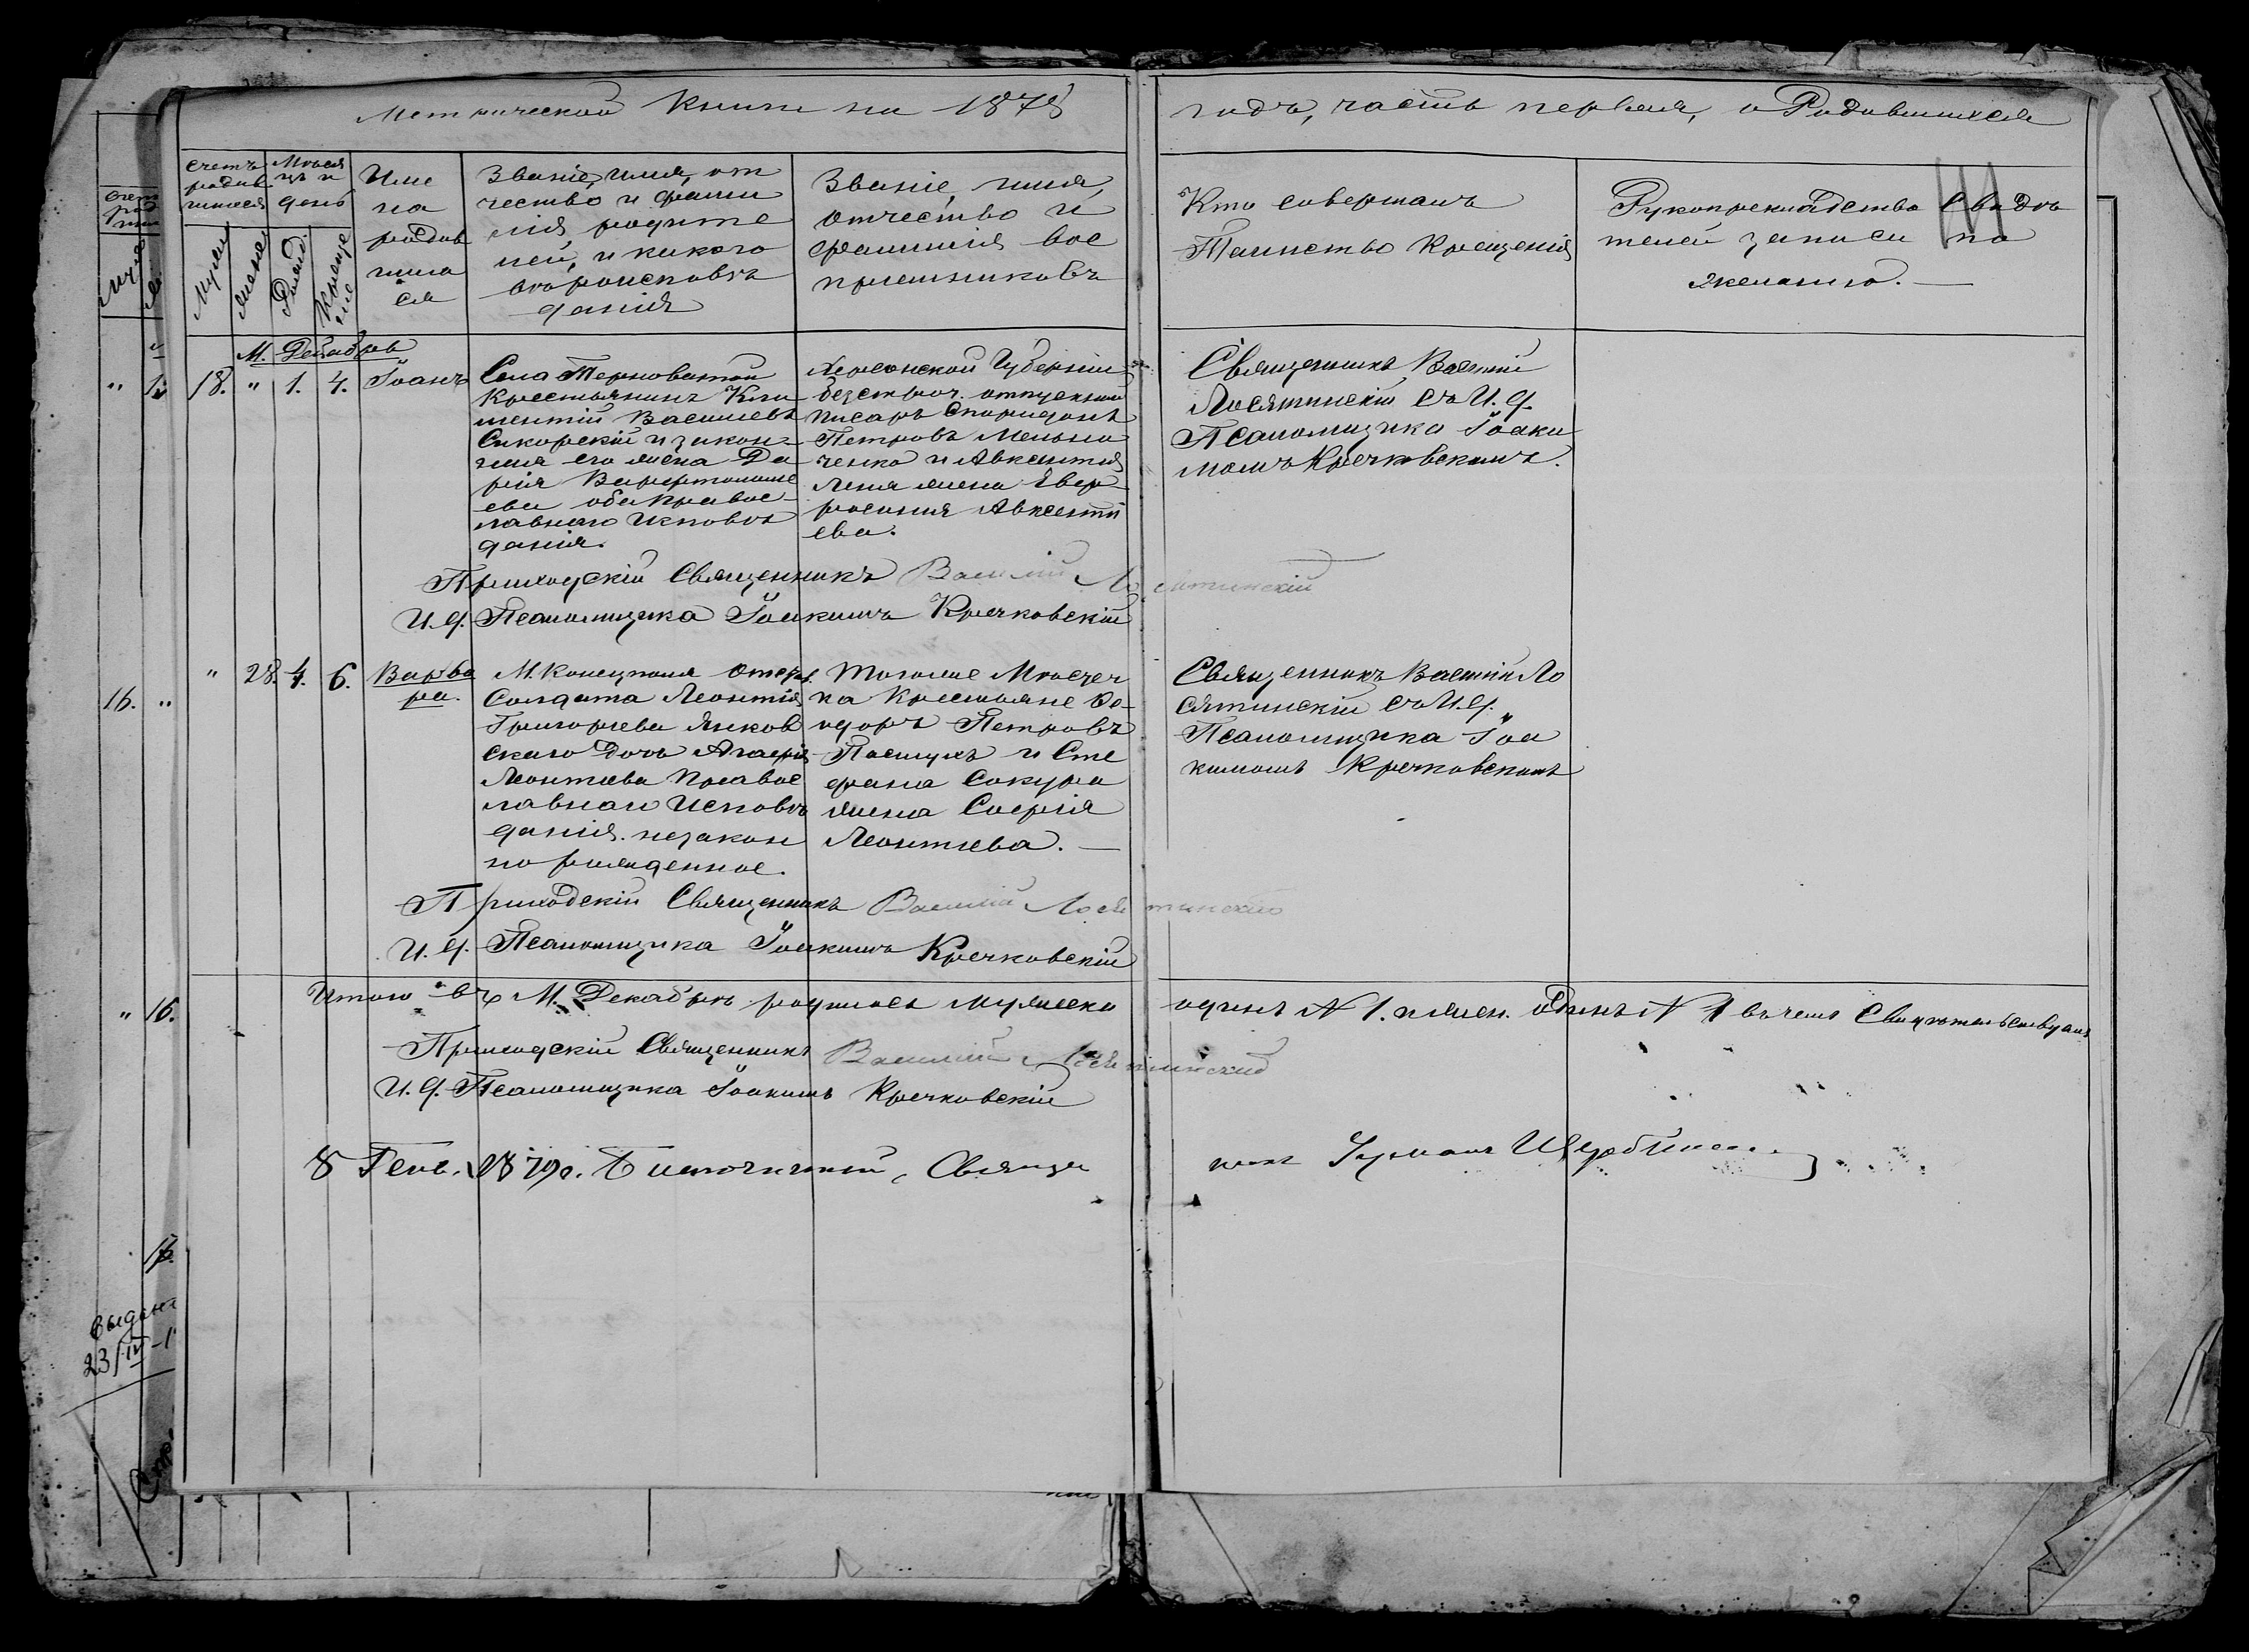 Метрической Книги на 1878
годъ, часть первая, о Родившихся
Счетъ
родив
шихся
Муж.
женск.
Мѣся
цъ и
день
Рожд.
Креще
ніе
Име
на
родив
шихъ
ся
Званіе, имя, от
чество и фами
лія родите
лей, и какого
вѣроисповѣ
данія
Званіе, имя,
отчество и
фамилія вос
пріемниковъ
Кто совершалъ
Таинство Крещенія
Рукоприкладство Свидѣ
телей записи по
желанію.
М. Декабрь
18. " 1. 4. Іоанъ
Села Терноватой
Крестьянинъ Кли
ментій Васильевъ
Сикорскій и закон-
ная его жена Да
рія Варфоломе
ева оба правос-
лавнаго исповѣ
данія.
Херсонской Губерніи
безсроч. отпускный
писарь Спиридонъ
Петровъ Мельни
ченко и Авксентія
жена Евфр
росинія Авксенті
ева.
Священникъ Василій
Лосятинскій съ И. д.
Псаломщика Іоаки
момъ Кречковскимъ.
Приходскій Священникъ Василій Лосятинскій
И. д. Псаломщика Іоакимъ Кречковскій
" 28. 4. 6. Варва
ра.
М. Конецполя отст.
Солдата Леонтія
Григорьева Янков
скаго дочь Агафія
Леонтіева правос
лавнаго исповѣ
данія. незакон
но рожденное.
Тогоже Мѣстеч
ка Крестьяне Ѳе-
одоръ Петровъ
и Сте
фана Сокура
жена Софія
Леонтіева.
Священникъ Василій Ло
сятинскій съ И. д.
Псаломщика Іоа
кимомъ Кречковскимъ
Приходскій Священникъ Василій Лосятинскій
И. д. Псаломщика Іоакимъ Кречковскій
Итого въ М. Декабрѣ родилось мужеска одинъ N 1. и жен. одинъ N 1 въ чемъ Свидѣтельствуемъ
Приходскій Священникъ Василій Лосятинскій
И. д. Псаломщика Іоакимъ Кречковскій
8 Генв. 1879 г. Благочинный, Священ
никъ
16. "
" 16.
23/IV